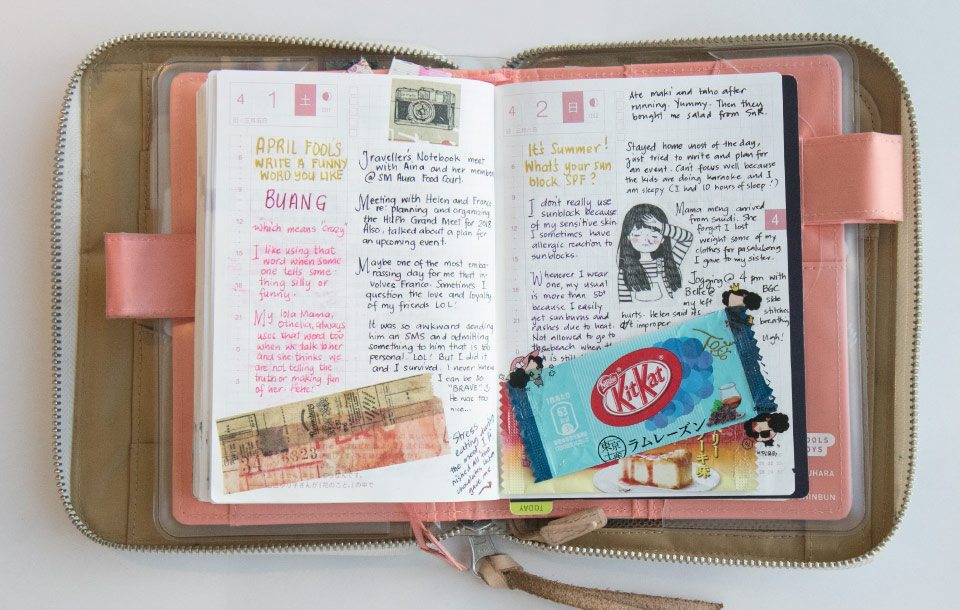 4 1 土
APRIL FOOLS
WRITE A FUNNY
WORD YOU LIKE
BUANG
"which means "Crazy"
I like using that
word when some
one tells some
thing silly or
funny.
My lola Mama,
Ornelia, always
uses that word too
when we talk to her
and she thinks we
are not telling the
truth or making fun
of her. Hehe!
Traveller's Notebook meet
with Aina and her members
@ SM Aura Food Court.
Meeting with Helen and Franco
re: planning and organizing
the HtPh Grand Meet for 2018.
Also, talked about a plan for
an upcoming event.
Maybe one of the most emba-
rassing day for me that in-
volves Franco. Sometimes I
question the love and loyalty
of my friends LOL!
It was so awkward sending
him an SMS and admitting
something to him that is too
personal. LOL! But I did it
and I survived. I never knew
I can be so
"BRAVE" :)
He was too
nice...
Stress
eating
the most I fi-
nished all
chocolates Helen
gave me
4 2 日
It's Summer!
What's your sun
block SPF?
I don't really use
sunblock because
of my sensitive skin.
I sometimes have
allergic reaction to
sunblocks.
Whenever I wear
one, my usual
is more than 50+
because I easily
get sunburns and
rashes due to heat.
Not allowed to go to
the beach when
is still
Ate maki and taho after
running. Yummy. Then they
bought me salad from SnR.
Stayed home most of the day,
Just tried to write and plan for
an event. Can't focus well because
the kids are doing karaoke and I
am sleepy (I had 10 hours of sleep!)
Mama meng arrived
from Saudi. She
forgot I lost
weight some of my
clothes for pasalubong
I gave to my sister.
4
Jogging @ 4 pm with
Belle @ BGC
my left side
hurts. Helen said it's stitches
improper breathing
Ugh!
Nestlé
KitKat
東京土産
ラムレーズン
ーキ味
TODAY